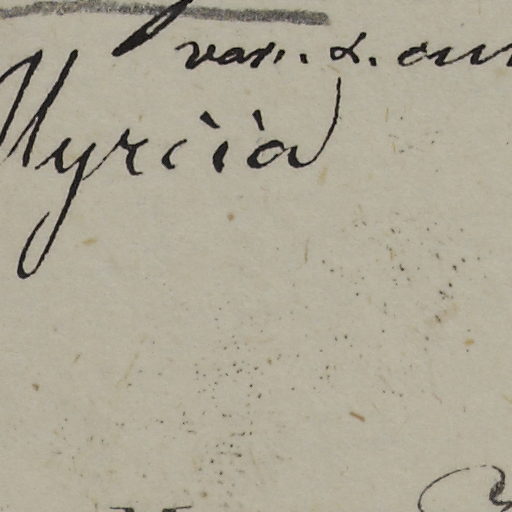 var. α.
Myrcia